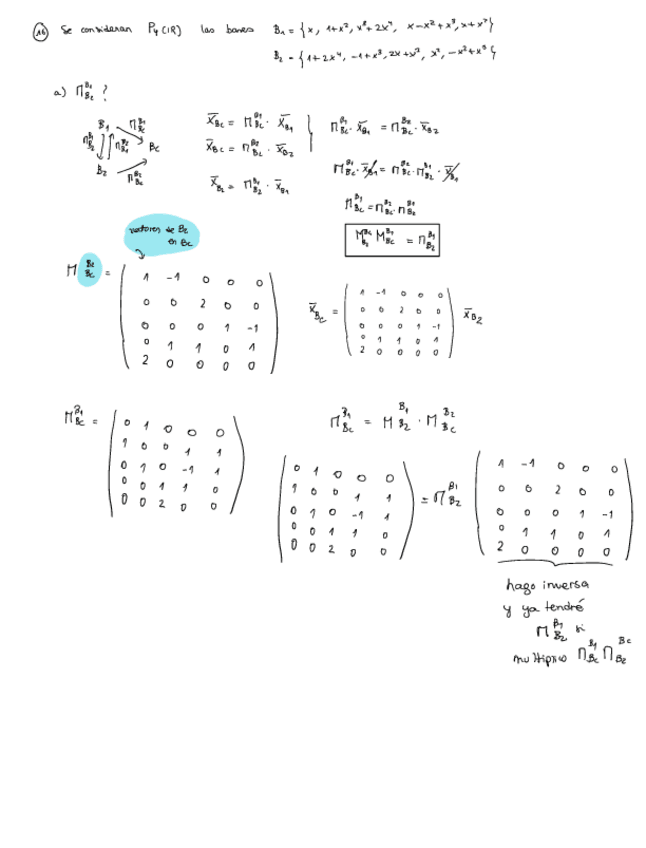 16 Se consideran P4(ℝ) las bases B1 = {x, 1+x², x³+2x⁴, x-x²+x³, x+x²}
B2 = {1+2x⁴, -1+x³, 2x+x³, x², -x²+x³}
a) M^B1_B2 ?
B1 M^B1_Bc Bc
M^B1_B2 M^B2_B1
B2 M^B2_Bc
x̄_Bc = M^B1_Bc · x̄_B1
x̄_Bc = M^B2_Bc · x̄_B2
x̄_B2 = M^B1_B2 · x̄_B1
M^B1_Bc · x̄_B1 = M^B2_Bc · x̄_B2
M^B1_Bc · x̄_B1 = M^B2_Bc · M^B1_B2 · x̄_B1
M^B1_Bc = M^B2_Bc · M^B1_B2
M^Bc_B2 M^B1_Bc = M^B1_B2
vectores de B2
en Bc
M^B2_Bc =
1 -1 0 0 0
0 0 2 0 0
0 0 0 1 -1
0 1 1 0 1
2 0 0 0 0
x̄_Bc =
1 -1 0 0 0
0 0 2 0 0
0 0 0 1 -1
0 1 1 0 1
2 0 0 0 0
x̄_B2
M^B1_Bc =
0 1 0 0 0
1 0 0 1 1
0 1 0 -1 1
0 0 1 1 0
0 0 2 0 0
M^B1_Bc = M^B1_B2 · M^B2_Bc
0 1 0 0 0
1 0 0 1 1
0 1 0 -1 1
0 0 1 1 0
0 0 2 0 0
= M^B1_B2
1 -1 0 0 0
0 0 2 0 0
0 0 0 1 -1
0 1 1 0 1
2 0 0 0 0
hago inversa
y ya tendré
M^B1_B2 si
multiplico M^B1_Bc M^Bc_B2